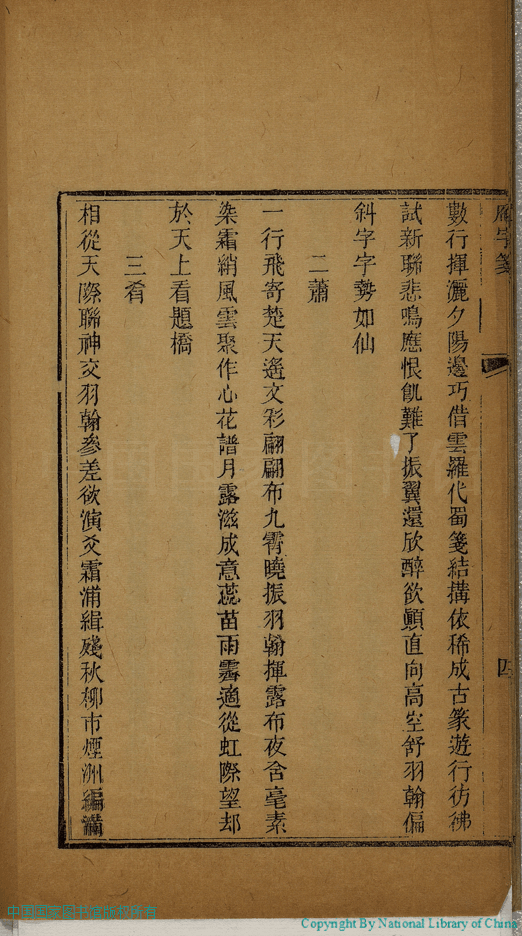 雁字箋
四
數行揮灑夕陽邊巧借雲羅代蜀箋結搆依稀成古篆遊行彷彿
試新聯悲鳴應恨飢難了振翼還欣醉欲顛直向高空舒羽翰偏
斜字字勢如仙
二蕭
一行飛寄楚天遙文彩翩翩布九霄曉振羽翰揮露布夜含毫素
染霜綃風雲聚作心花譜月露滋成意蕊苗雨霽適從虹際望却
於天上看題橋
三肴
相從天際聯神交羽翰參差欲演爻霜浦緝殘秋柳市煙洲編滿
Copyright By National Library of China